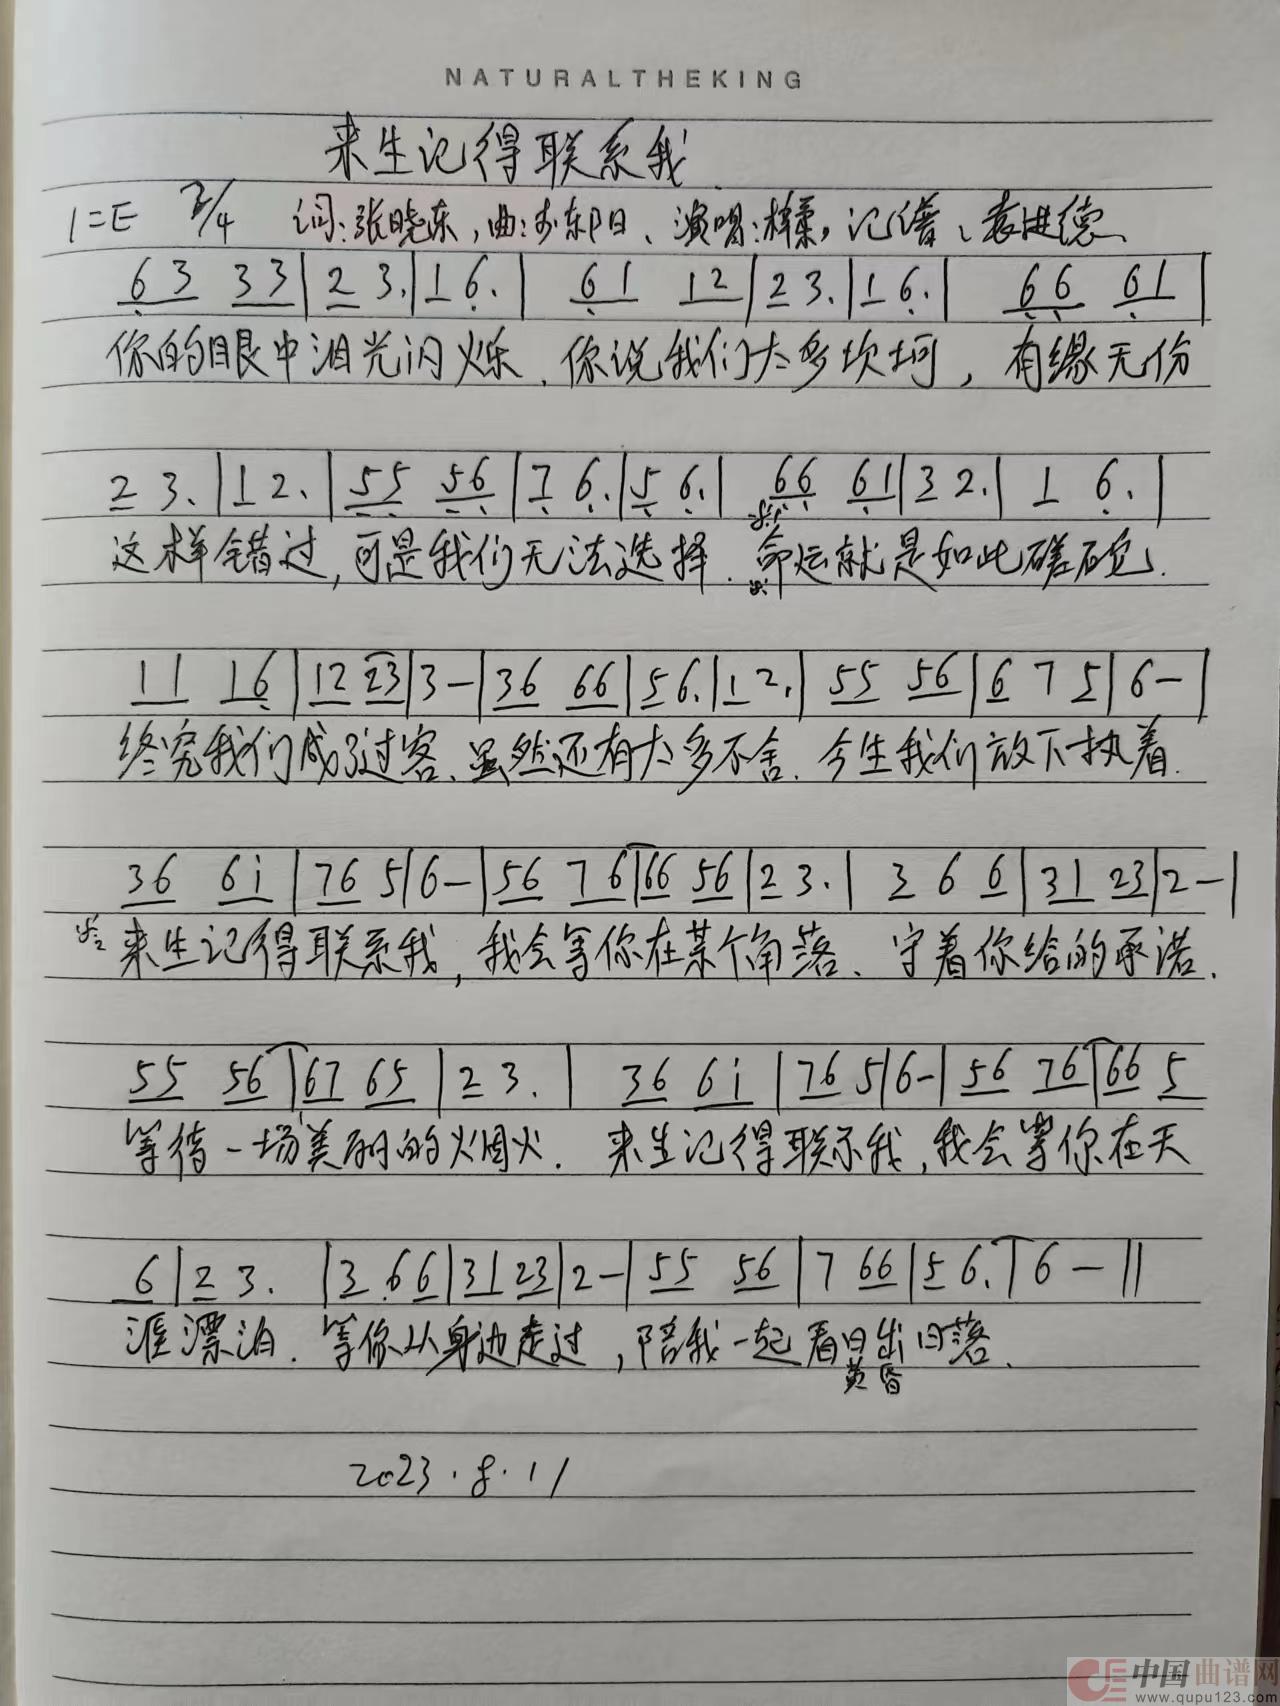 NATURALTHEKING
来生记得联系我
1=E 2/4 词:张晓东,曲:步东阳、演唱:梓柔,记谱、袁进德
63 33|2 3.|1 6.| 61 12|2 3.|1 6.| 66 61|
你的眼中泪光闪烁.你说我们太多坎坷,有缘无份
2 3.|1 2.|55 56|7 6.|5 6.| 66 61|3 2.| 1 6.|
这样错过,可是我们无法选择.命运就是如此磋砣.
11 16|12 23|3-|36 66|5 6.|1 2.| 55 56|6 7 5|6-|
终究我们成了过客、虽然还有太多不舍.今生我们放下执着.
36 6i|76 5|6-|56 76|66 56|2 3.| 3 6 6|31 23|2-|
来生记得联系我,我会等你在某个角落、守着你给的承诺.
55 56|67 65|2 3.| 36 6i|76 5|6-|56 76|66 5
等待一场美丽的烟火.来生记得联系我,我会等你在天
6|2 3. |3.66|31 23|2-|55 56|7 66|5 6.|6-||
涯漂泊.等你从身边走过,陪我一起看日出日落.
黄昏
2023.8.11
中国曲谱网
www.qupu123.com